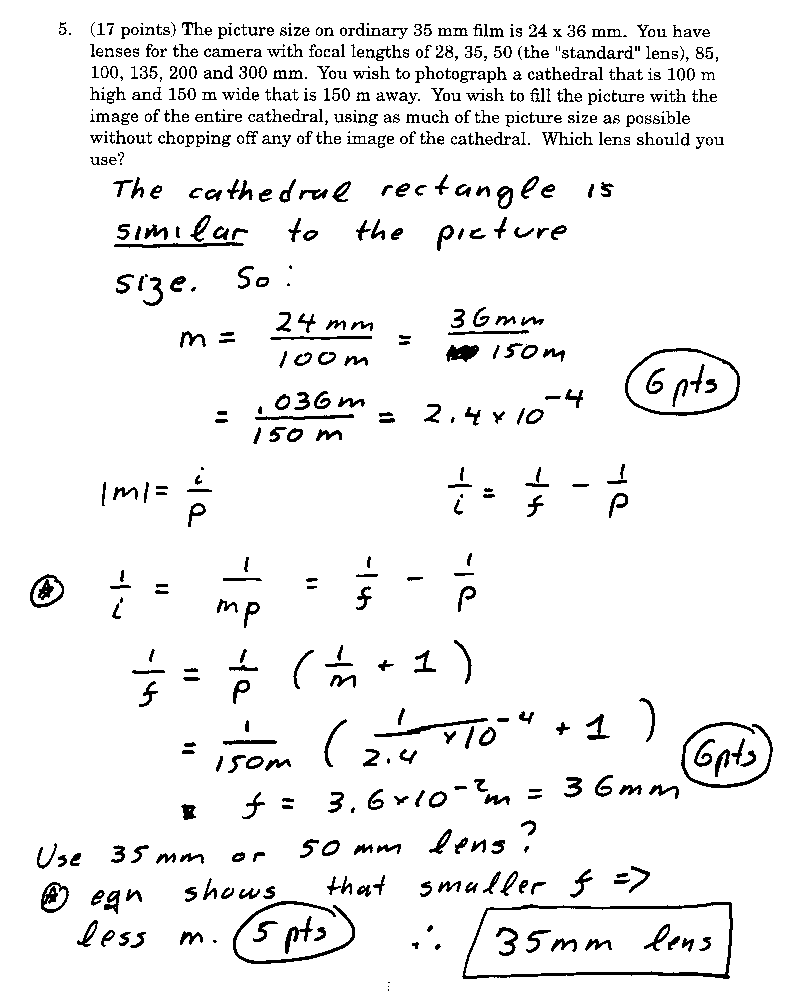 5. (17 points) The picture size on ordinary 35 mm film is 24 x 36 mm. You have
lenses for the camera with focal lengths of 28, 35, 50 (the "standard" lens), 85,
100, 135, 200 and 300 mm. You wish to photograph a cathedral that is 100 m
high and 150 m wide that is 150 m away. You wish to fill the picture with the
image of the entire cathedral, using as much of the picture size as possible
without chopping off any of the image of the cathedral. Which lens should you
use?
The cathedral rectangle is
similar to the picture
size. So:
m = 24 mm / 100 m = 36 mm / 150 m
= .036 m / 150 m = 2.4 × 10^-4
6 pts
|m| = i/p 1/i = 1/f - 1/p
1/i = 1/mp = 1/f - 1/p
1/f = 1/p (1/m + 1)
= 1/150m (1/2.4 × 10^-4 + 1)
6 pts
f = 3.6 × 10^-2 m = 36 mm
Use 35 mm or 50 mm lens?
eqn shows that smaller f =>
less m. 5 pts ∴ 35 mm lens